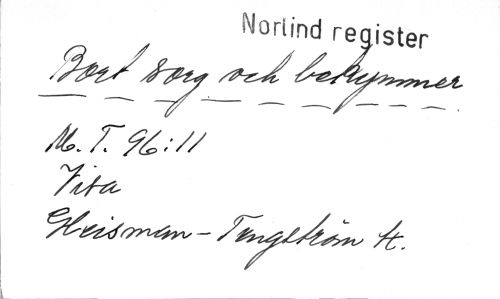 Norlind register
Bort sorg och bekymmer
M. T. 96:11
Visa
Heisman - Tengström H.